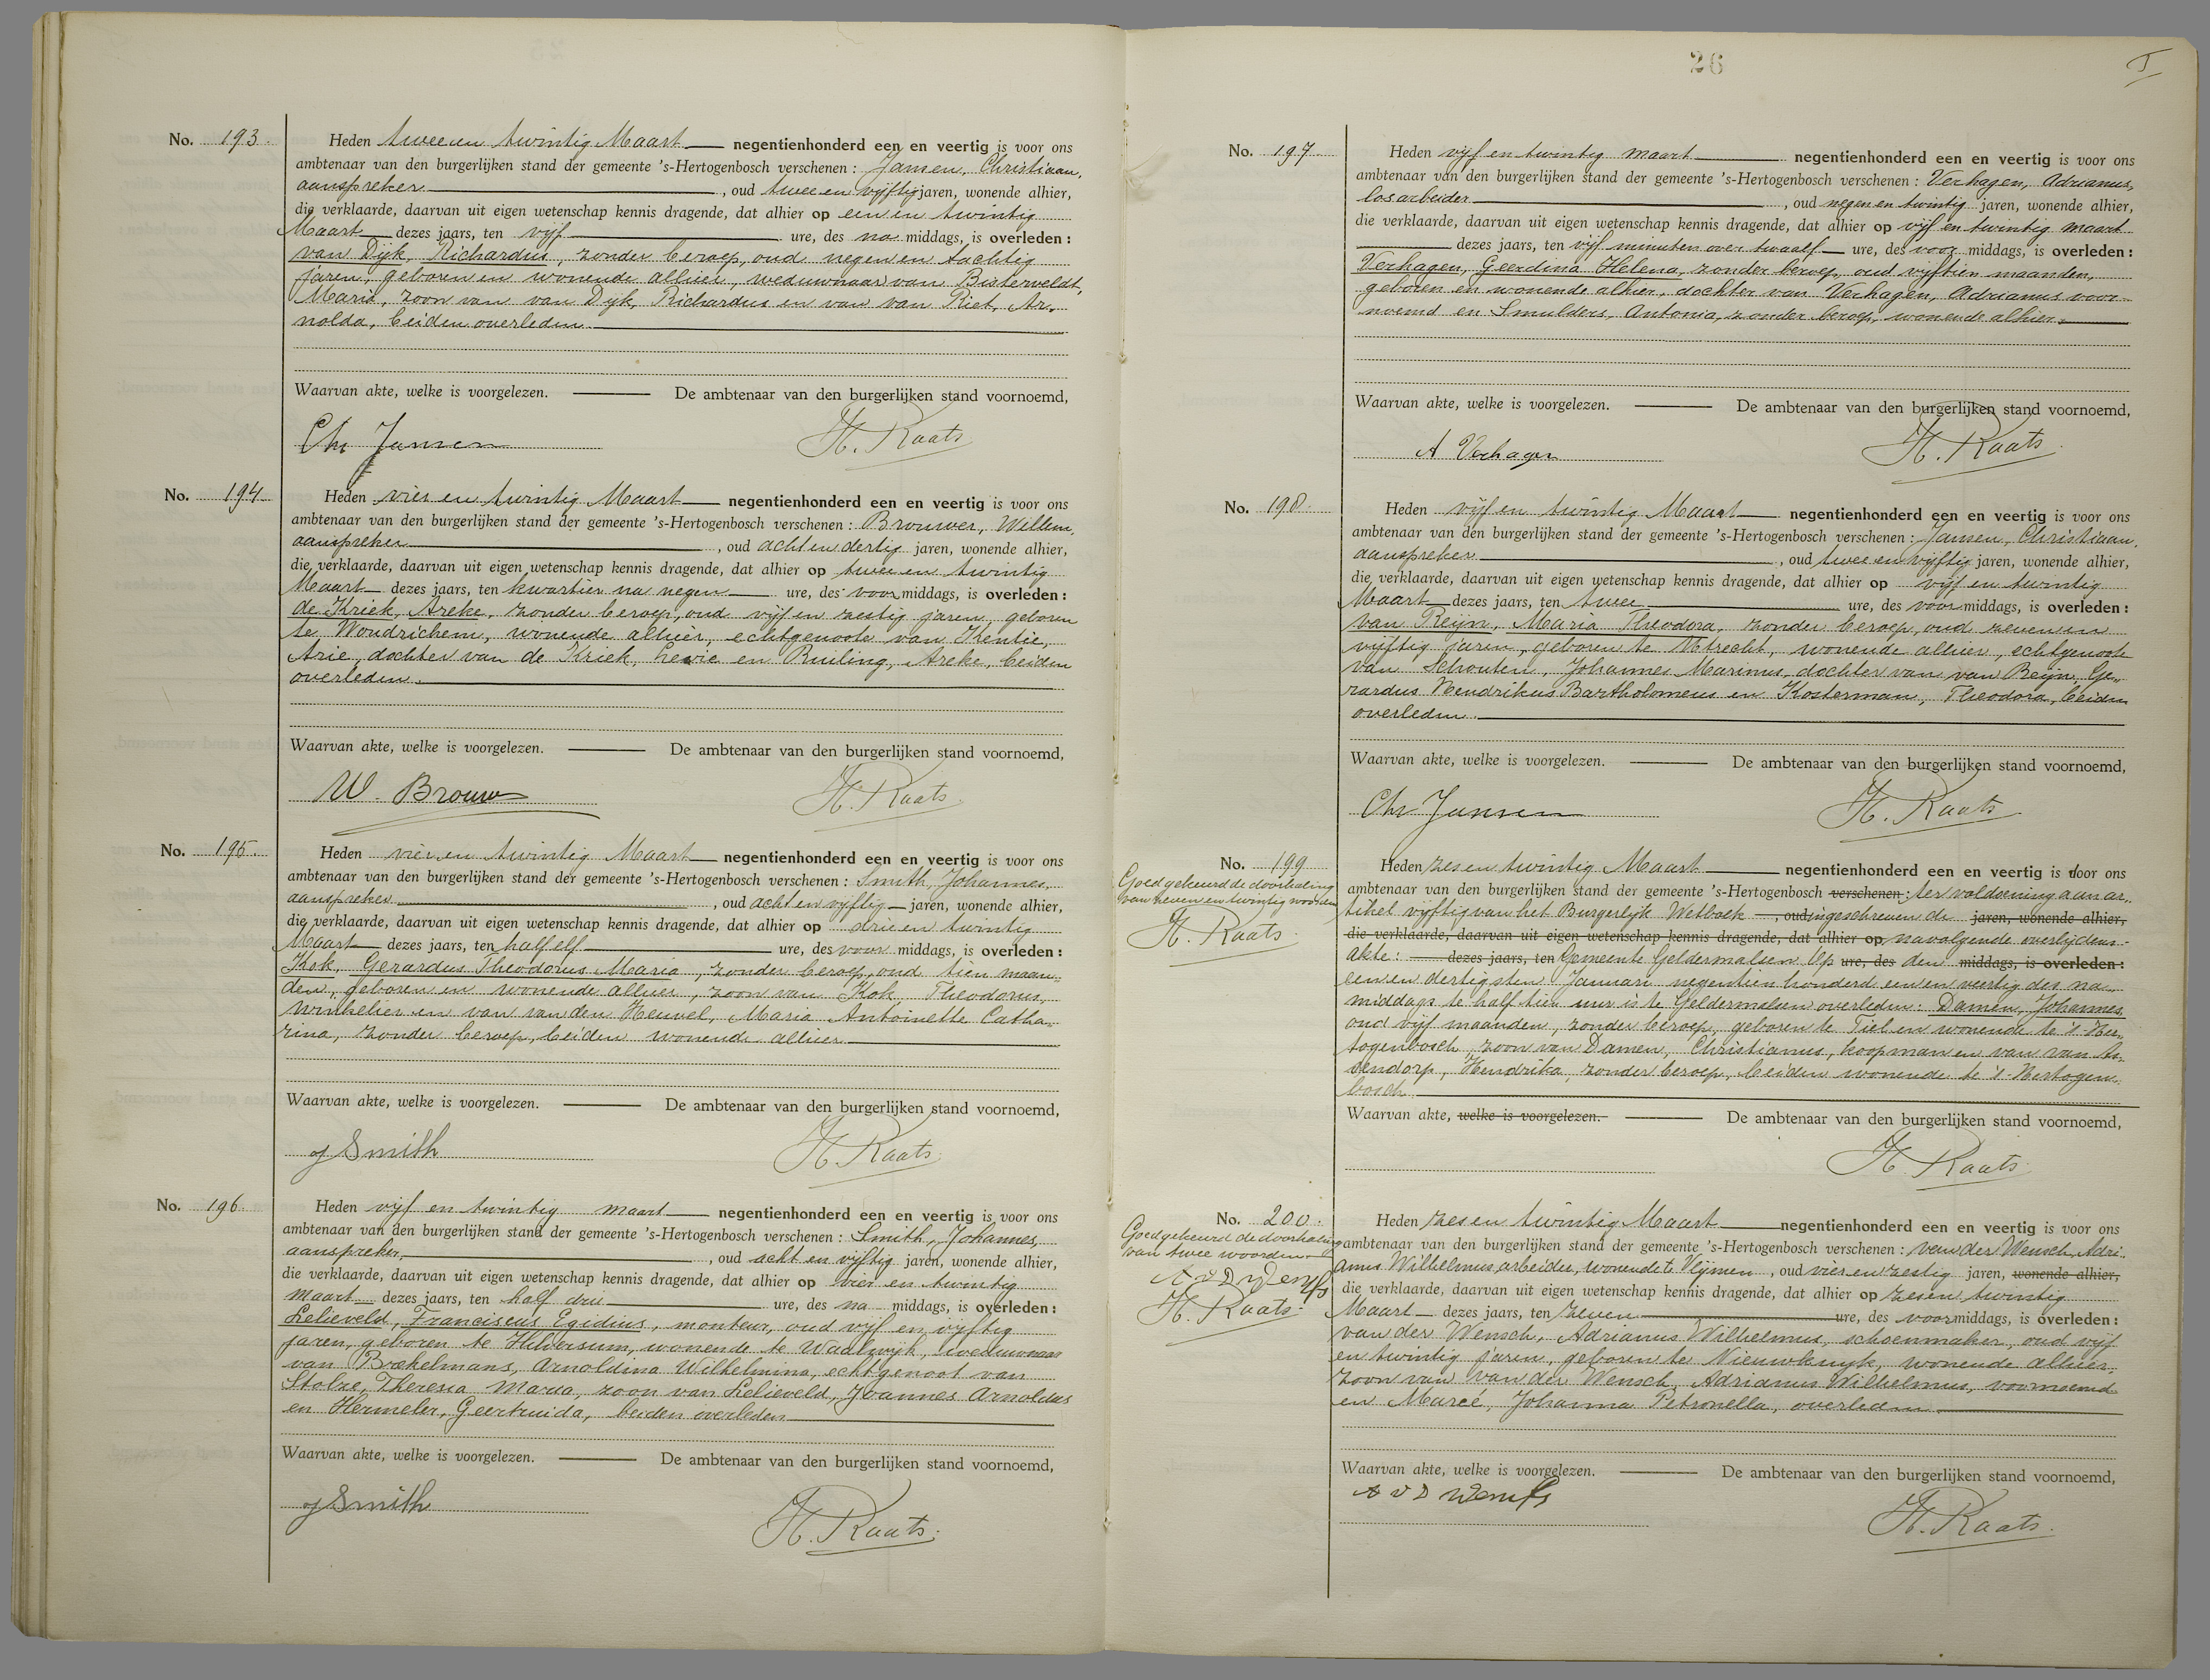 No. 193.
Heden twee en twintig Maart negentienhonderd een en veertig is voor ons
ambtenaar van den burgerlijken stand der gemeente 's-Hertogenbosch verschenen: Jansen, Christiaan,
aanspreker, oud twee en vijftig jaren, wonende alhier,
die verklaarde, daarvan uit eigen wetenschap kennis dragende, dat alhier op een en twintig
Maart dezes jaars, ten vijf ure, des na middags, is overleden:
van Dijk, Richardus, zonder beroep, oud negen en tachtig
jaren, geboren en wonende alhier, weduwnaar van Bisterveldt,
Maria, zoon van van Dijk, Richardus en van van Riet, Ar-
nolda, beiden overleden.
Waarvan akte, welke is voorgelezen. De ambtenaar van den burgerlijken stand voornoemd,
Chr Jansen H. Raats
No. 194
Heden vier en twintig Maart negentienhonderd een en veertig is voor ons
ambtenaar van den burgerlijken stand der gemeente 's-Hertogenbosch verschenen: Brouwer, Willem,
aanspreker, oud acht en dertig jaren, wonende alhier,
die verklaarde, daarvan uit eigen wetenschap kennis dragende, dat alhier op twee en twintig
Maart dezes jaars, ten kwartier na negen ure, des voor middags, is overleden:
de Kriek, Areke, zonder beroep, oud vijf en zestig jaren, geboren
te Woudrichem, wonende alhier, echtgenoote van Kentie,
Arie, dochter van de Kriek, en Ruiling, Areke, beiden
overleden.
Waarvan akte, welke is voorgelezen. De ambtenaar van den burgerlijken stand voornoemd,
W. Brouwer H. Raats.
No. 195.
Heden vier en twintig Maart negentienhonderd een en veertig is voor ons
ambtenaar van den burgerlijken stand der gemeente 's-Hertogenbosch verschenen: Smith, Johannes,
aanspreker, oud acht en vijftig jaren, wonende alhier,
die verklaarde, daarvan uit eigen wetenschap kennis dragende, dat alhier op drie en twintig
Maart dezes jaars, ten half elf ure, des voor middags, is overleden:
Kok, Gerardus Theodorus Maria, zonder beroep, oud tien maan-
den, geboren en wonende alhier, zoon van Kok, Theodorus,
winkelier en van van den Heuvel, Maria Antoinette Catha-
rina, zonder beroep, beiden wonende alhier.
Waarvan akte, welke is voorgelezen. De ambtenaar van den burgerlijken stand voornoemd,
J Smith H. Raats.
No. 196.
Heden vijf en twintig maart negentienhonderd een en veertig is voor ons
ambtenaar van den burgerlijken stand der gemeente 's-Hertogenbosch verschenen: Smith, Johannes,
aanspreker, oud acht en vijftig jaren, wonende alhier,
die verklaarde, daarvan uit eigen wetenschap kennis dragende, dat alhier op vier en twintig
maart dezes jaars, ten half drie ure, des na middags, is overleden:
Lelieveld, Franciscus Egidius, monteur, oud vijf en vijftig
jaren, geboren te Hilversum, wonende te Waalwijk, weduwnaar
van Brekelmans, Arnoldina Wilhelmina, echtgenoot van
Stolze, Theresia Maria, zoon van Lelieveld, Joannes Arnoldus
en Hermeler, Geertruida, beiden overleden
Waarvan akte, welke is voorgelezen. De ambtenaar van den burgerlijken stand voornoemd,
J Smith H. Raats.
26
I
No. 197
Heden vijf en twintig maart negentienhonderd een en veertig is voor ons
ambtenaar van den burgerlijken stand der gemeente 's-Hertogenbosch verschenen: Verhagen, Adrianus,
losarbeider, oud negen en twintig jaren, wonende alhier,
die verklaarde, daarvan uit eigen wetenschap kennis dragende, dat alhier op vijf en twintig maart
dezes jaars, ten vijf minuten over twaalf ure, des voor middags, is overleden:
Verhagen, Geerdina Helena, zonder beroep, oud vijftien maanden,
geboren en wonende alhier, dochter van Verhagen, Adrianus voor-
noemd en Smulders, Antonia, zonder beroep, wonende alhier.
Waarvan akte, welke is voorgelezen. De ambtenaar van den burgerlijken stand voornoemd,
A Verhagen H. Raats.
No. 198.
Heden vijf en twintig Maart negentienhonderd een en veertig is voor ons
ambtenaar van den burgerlijken stand der gemeente 's-Hertogenbosch verschenen: Jansen, Christiaan,
aanspreker, oud twee en vijftig jaren, wonende alhier,
die verklaarde, daarvan uit eigen wetenschap kennis dragende, dat alhier op vijf en twintig
Maart dezes jaars, ten twee ure, des voor middags, is overleden:
van Reijn, Maria Theodora, zonder beroep, oud zeven en
vijftig jaren, geboren te Utrecht, wonende alhier, echtgenoote
van Schouten, Johannes Marinus, dochter van van Reijn, Ge-
rardus Hendrikus Bartholomeus en Kosterman, Theodora, beiden
overleden.
Waarvan akte, welke is voorgelezen. De ambtenaar van den burgerlijken stand voornoemd,
Chr Jansen H. Raats
No. 199
Goedgekeurd de doorhaling
van zeven en twintig woorden
H. Raats.
Heden zes en twintig Maart negentienhonderd een en veertig is door ons
ambtenaar van den burgerlijken stand der gemeente 's-Hertogenbosch verschenen: ter voldoening aan ar-
tikel vijftig van het Burgerlijk Wetboek, oud ingeschreven de jaren, wonende alhier,
die verklaarde, daarvan uit eigen wetenschap kennis dragende, dat alhier op navolgende overlijdens-
akte: dezes jaars, ten Gemeente Geldermalsen Op ure, des den middags, is overleden:
een en dertigsten Januari negentien honderd een en veertig des na-
middags te half tien uur is te Geldermalsen overleden: Damen, Johannes,
oud vijf maanden, zonder beroep, geboren te Tiel en wonende te 's-Her-
togenbosch, zoon van Damen, Christianus, koopman en van van As-
sendorp, Hendrika, zonder beroep, beiden wonende te 's-Hertogen-
bosch.
Waarvan akte, welke is voorgelezen. De ambtenaar van den burgerlijken stand voornoemd,
H. Raats.
No. 200.
Goedgekeurd de doorhaling
van twee woorden
A v D Wensch
H. Raats.
Heden zes en twintig Maart negentienhonderd een en veertig is voor ons
ambtenaar van den burgerlijken stand der gemeente 's-Hertogenbosch verschenen: van der Wensch, Adri-
anus Wilhelmus, arbeider, wonende te Vlijmen, oud vier en zestig jaren, wonende alhier,
die verklaarde, daarvan uit eigen wetenschap kennis dragende, dat alhier op zes en twintig
Maart dezes jaars, ten zeven ure, des voor middags, is overleden:
van der Wensch, Adrianus Wilhelmus, schoenmaker, oud vijf
en twintig jaren, geboren te Nieuwkuijk, wonende alhier,
zoon van van der Wensch, Adrianus Wilhelmus, voornoemd
en Marcé, Johanna Petronella, overleden.
Waarvan akte, welke is voorgelezen. De ambtenaar van den burgerlijken stand voornoemd,
A v D Wensch H. Raats.